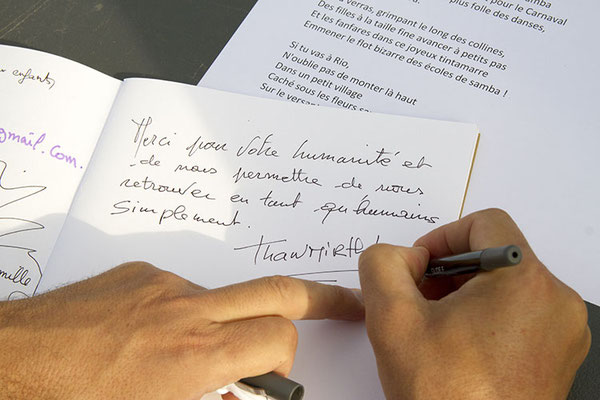 samba
pour le Carnaval
plus folle des danses,
verras, grimpant le long des collines,
Des filles à la taille fine avancer à petits pas
Et les fanfares dans ce joyeux tintamarre
Emmener le flot bizarre des écoles de samba !
Si tu vas à Rio,
N'oublie pas de monter là haut
Dans un petit village
Caché sous les fleurs
Sur le versant
enfants
gmail.com.
Merci pour votre humanité et
de nous permettre de nous
retrouver en tant qu'humains
simplement.